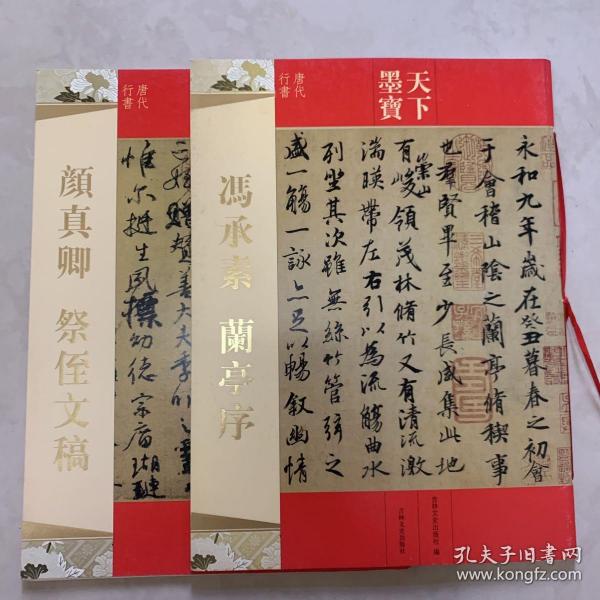 唐代
行書
顏真卿 祭侄文稿
贈贊善大夫季
惟尔挺生夙標幼德宗廟瑚璉
天下
墨寶
唐代
行書
馮承素 蘭亭序
永和九年歲在癸丑暮春之初會
于會稽山陰之蘭亭脩稧事
也羣賢畢至少長咸集此地
有崇山峻領茂林脩竹又有清流激
湍暎帶左右引以為流觴曲水
列坐其次雖無絲竹管弦之
盛一觴一詠亦足以暢叙幽情
吉林文史出版社 編
吉林文史出版社
孔夫子旧书网
www.kongfz.com